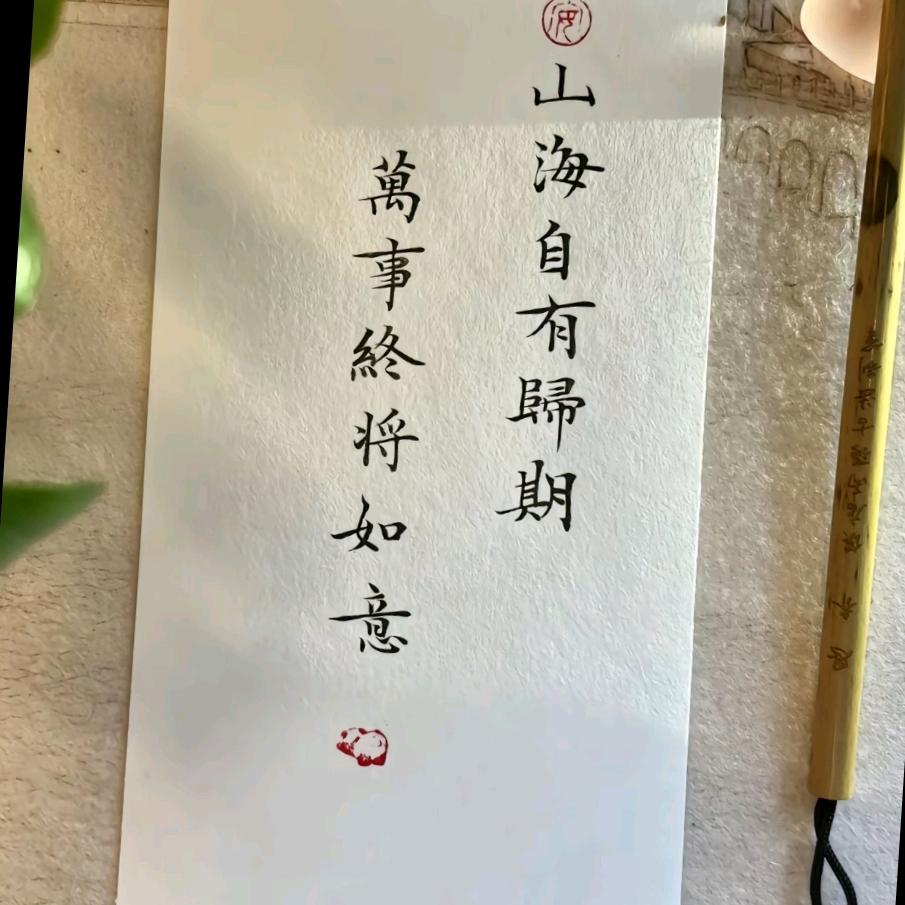 山海自有歸期
萬事終将如意